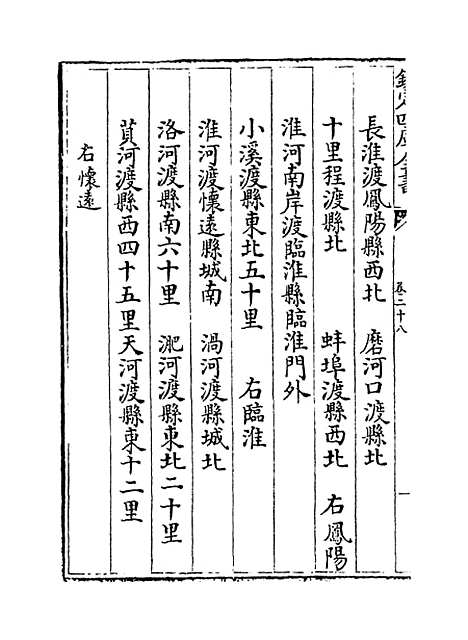 欽定四庫全書
卷二十八
長淮渡鳳陽縣西北　磨河口渡縣北
十里程渡縣北　蚌埠渡縣西北　右鳳陽
淮河南岸渡臨淮縣臨淮門外
小溪渡縣東北五十里　右臨淮
淮河渡懷遠縣城南　渦河渡縣城北
洛河渡縣南六十里　淝河渡縣東北二十里
茛河渡縣西四十五里天河渡縣東十二里
右懷遠